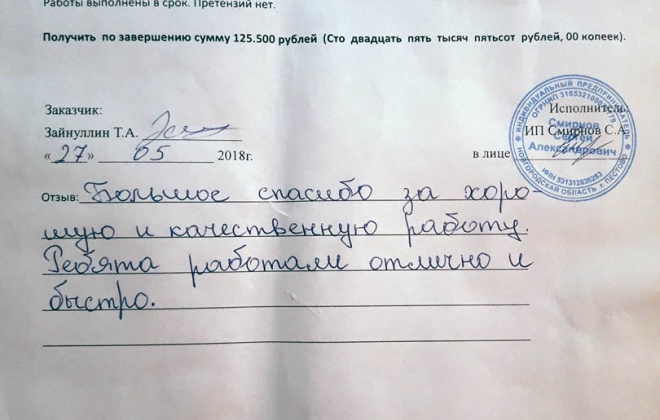 Работы выполнены в срок. Претензий нет.
Получить по завершению сумму 125.500 рублей (Сто двадцать пять тысяч пятьсот рублей, 00 копеек).
Заказчик:
Исполнитель:
Зайнуллин Т.А.
ИП Смирнов С.А.
«27» 05 2018г.
в лице
ИНДИВИДУАЛЬНЫЙ ПРЕДПРИНИМАТЕЛЬ
Смирнов
Сергей
Александрович
ИНН 531312636283
НОВГОРОДСКАЯ ОБЛАСТЬ г. ПЕСТОВО
Отзыв: Большое спасибо за хоро-
шую и качественную работу.
Ребята работали отлично и
быстро.